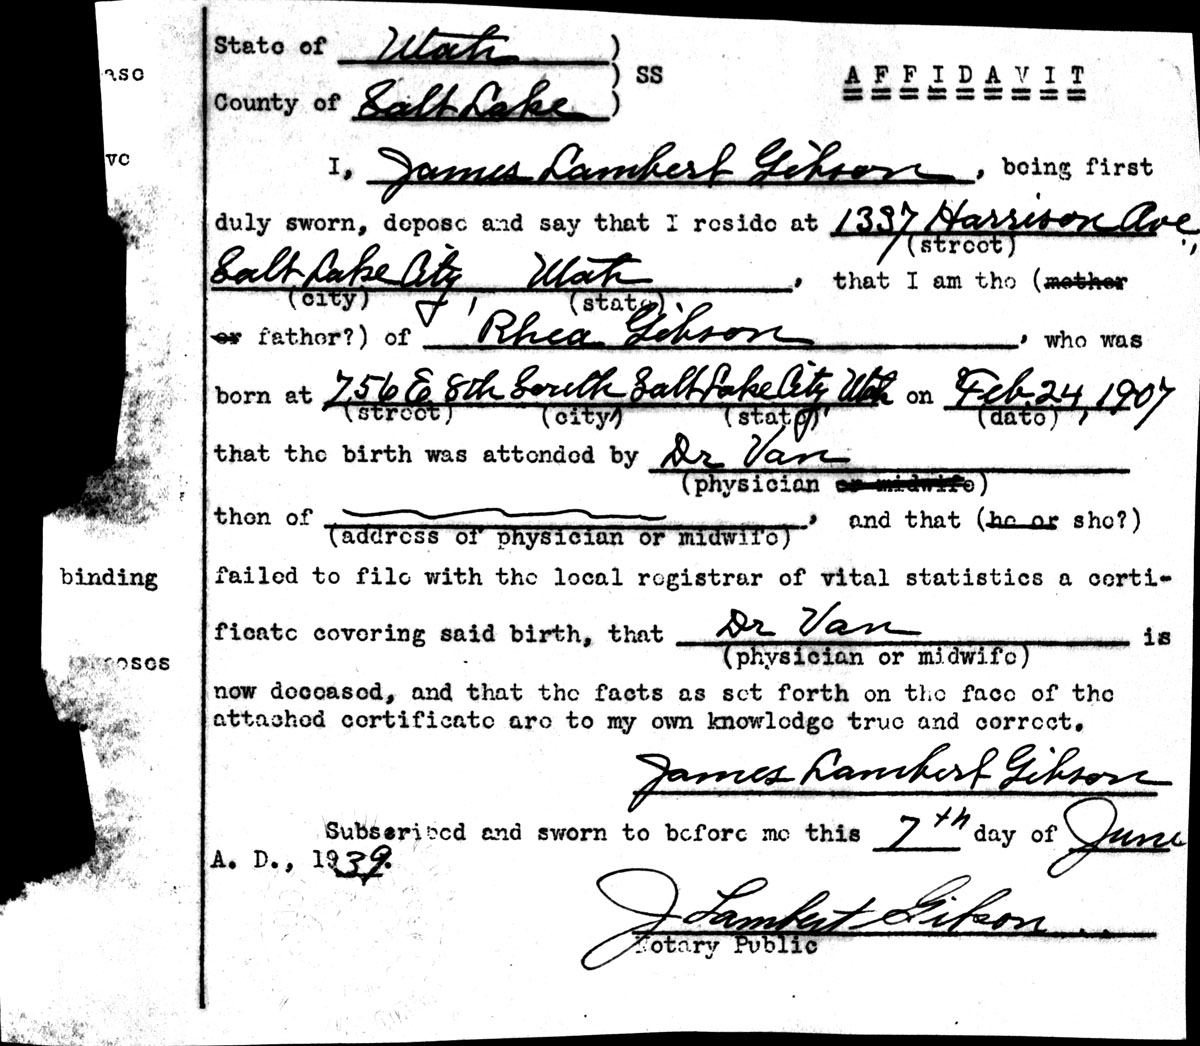 State of Utah )
) SS
AFFIDAVIT
County of Salt Lake )
I, James Lambert Gibson, being first
duly sworn, depose and say that I reside at 1337 Harrison Ave,
(street)
Salt Lake City, Utah, that I am the (mother
(city) (state)
or father?) of Rhea Gibson, who was
born at 756 E 8th South Salt Lake City, Utah on Feb. 24, 1907
(street) (city) (state) (date)
that the birth was attended by Dr Van
(physician or midwife)
then of , and that (he or she?)
(address of physician or midwife)
binding
failed to file with the local registrar of vital statistics a certi-
ficate covering said birth, that Dr Van is
(physician or midwife)
now deceased, and that the facts as set forth on the face of the
attached certificate are to my own knowledge true and correct.
James Lambert Gibson
Subscribed and sworn to before me this 7th day of June
A. D., 1939.
J Lambert Gibson
Notary Public